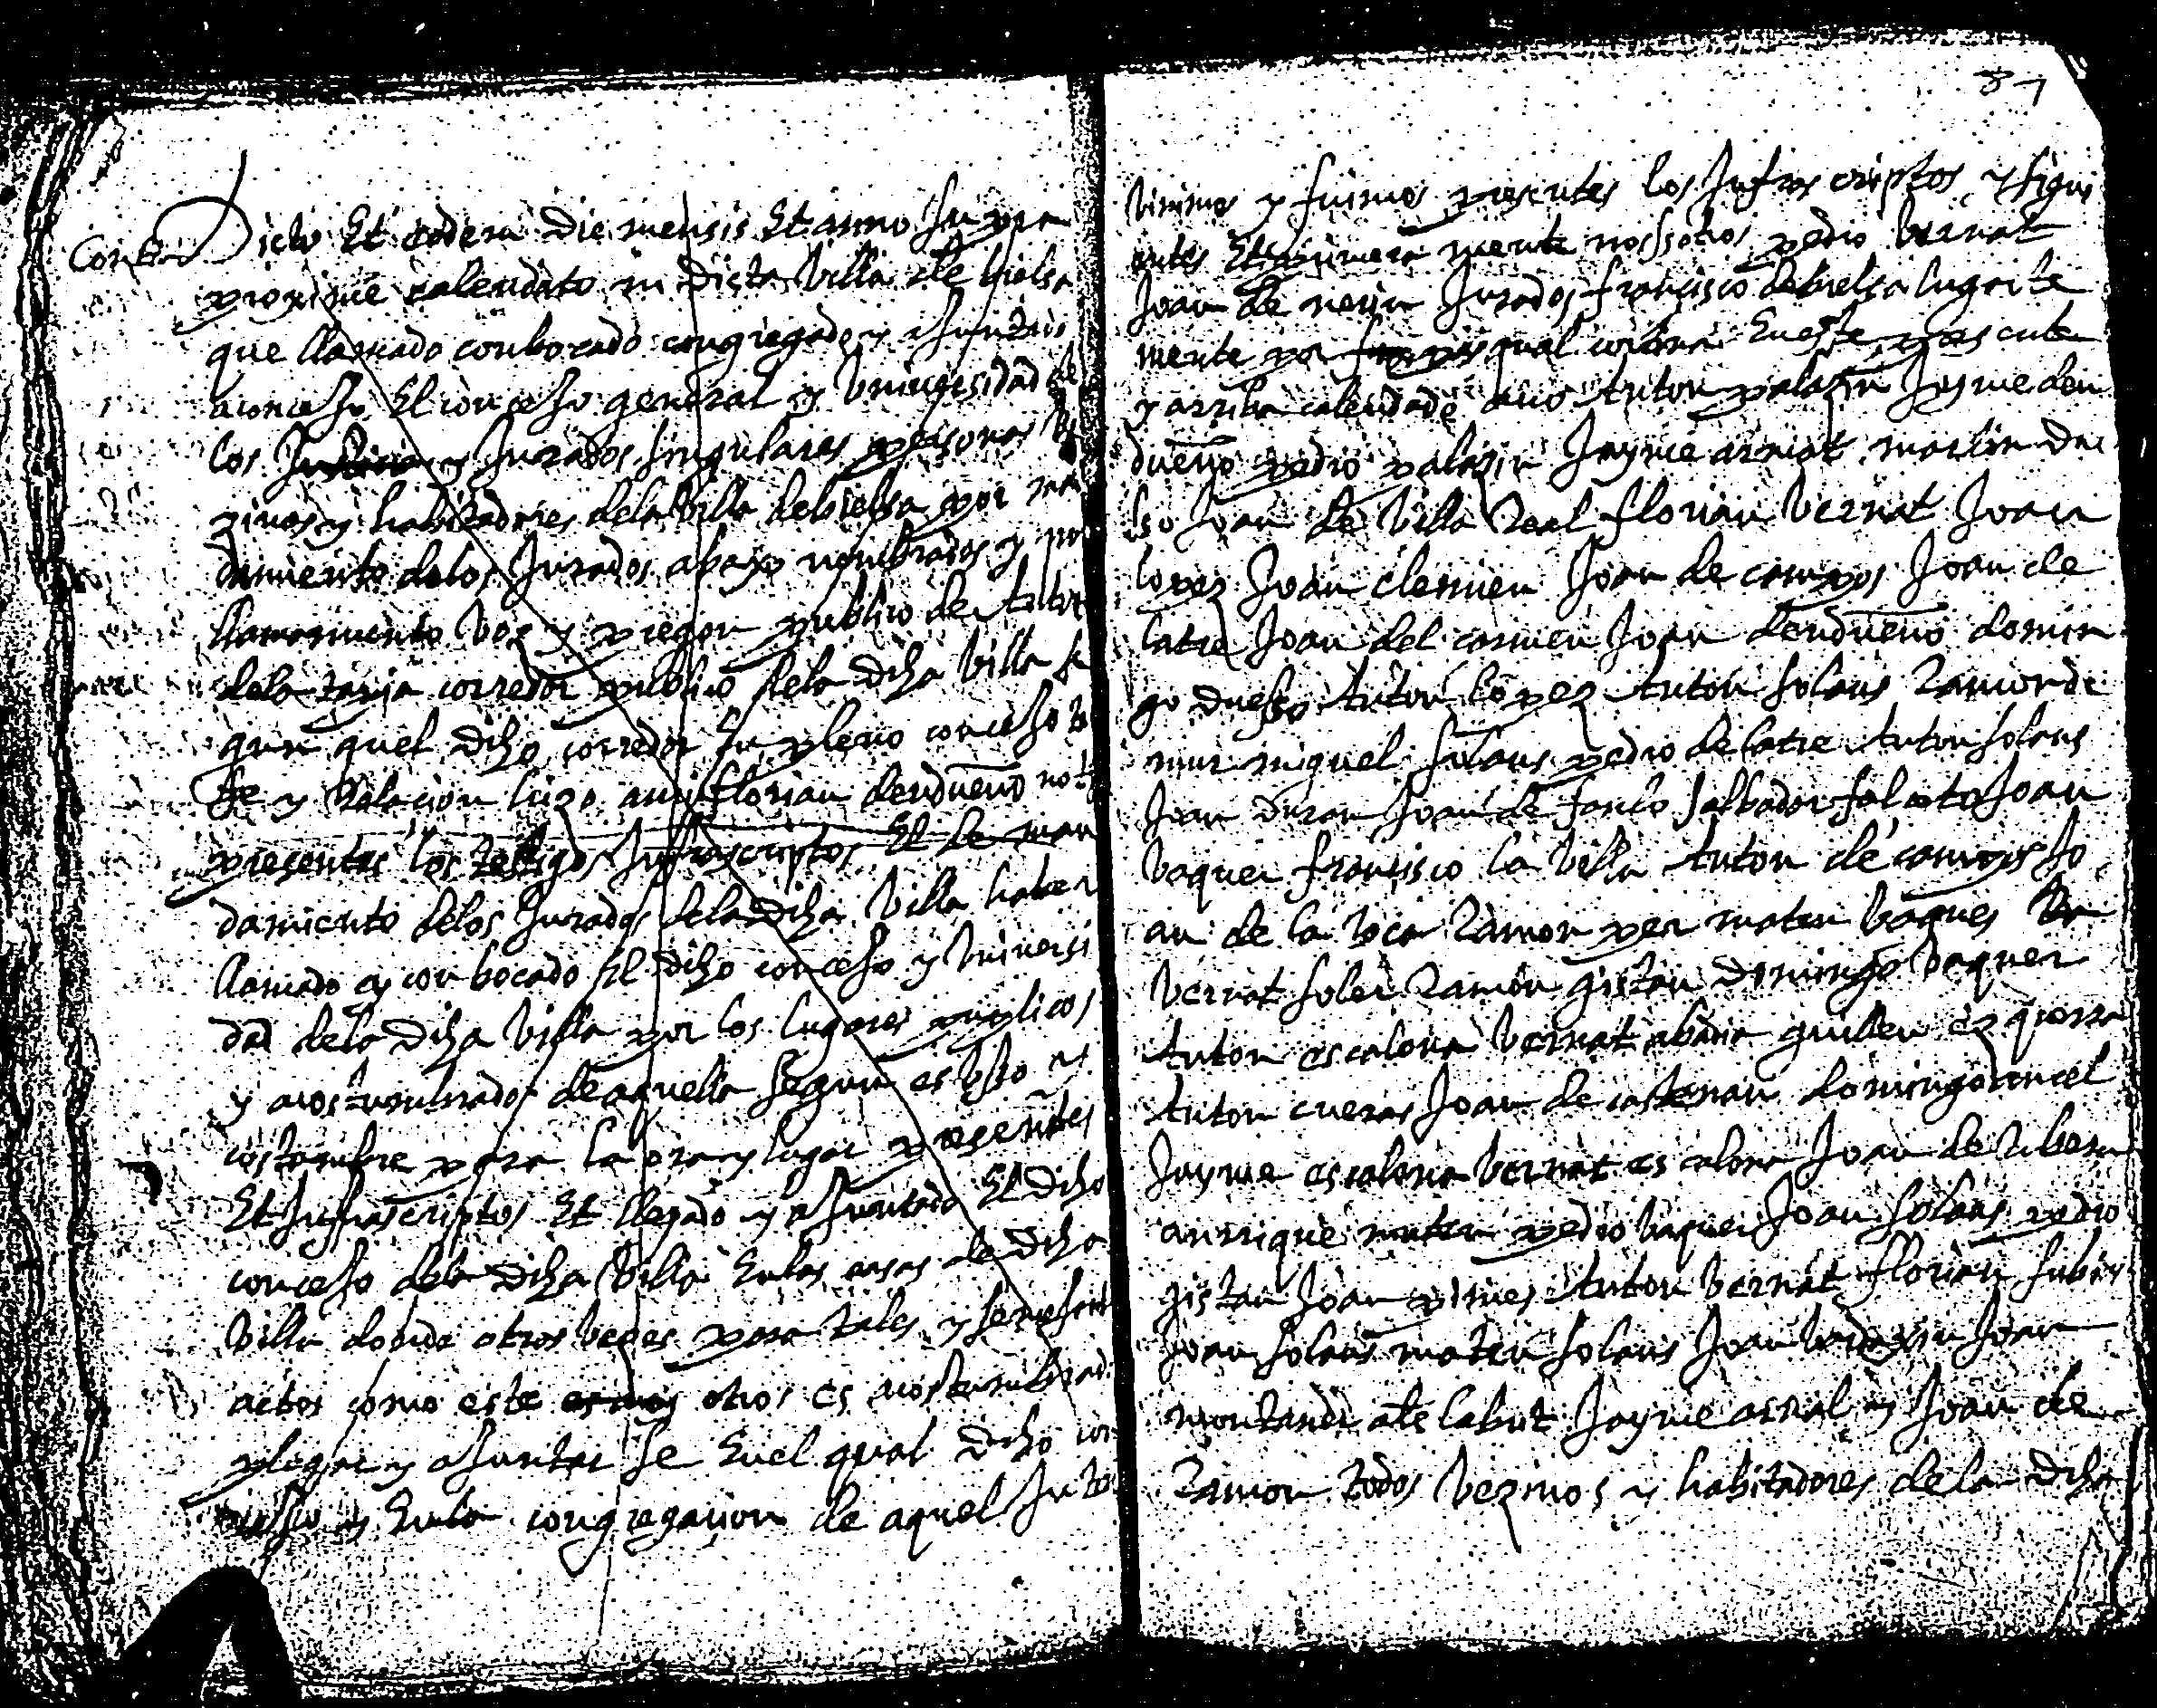 Dicto Et eodem die mensis Et anno Supra
proxime calendato in dicta Villa de bielsa
que llamado conbocado congregado y ajuntado
a concejo El concejo general y Vniversidad de
los Jurados singulares personas
zinos y habitadores dela Villa de bielsa por man
damiento delos Jurados abajo nombrados y por
llamamiento Voz y pregon publico de Anton
dela corredor publico dela diha Villa se
gun quel diho corredor En pleno concejo
fe y Relacion hizo a mi florian dendueño not
presentes los testigos Infrascriptos El de man
damiento delos Jurados dela diha Villa haber
llamado y conbocado El diho concejo y Vniversi
dad dela diha Villa por los lugares puplicos
y acostumbrados de aquella segun es Vsso y
costumbre para la ora y lugar presentes
Et Infrascriptos Et llegado y ajuntado El diho
concejo dela diha Villa En las casas de diha
Villa donde otras Vezes para tales y semejant
actos como este otros es acostumbrad
plegar y ajuntar se En el qual diho con
cejo y En la congregacion de aquel
87
Vinimos y fuimos presentes los Infras criptos y sigui
entes Et primera mente nossotros pedro bernat
Joan de nerin Jurados francisco de bielsa lugarte
mente por En este pres ente
y arriba calendado año Anton palazin Jayme den
dueño pedro palazin Jayme arnat martin du
sso Joan de Villa Real florian bernat Joan
lopez Joan clemen Joan de campos Joan de
latre Joan del carmen Joan dendueño domin
go duesso Anton lopez Anton solans Ramon de
mur miguel solans pedro de latre Anton solans
Joan duran Joan de fanlo salbador Joan
baquer francisco la Villa Anton de campos Jo
an de la Ramon per mateu
bernat soler Ramon gistau domingo baquer
Anton escalona bernat abadia guillen ezquerra
Anton cueras Joan de castenau domingo
Jayme escalona bernat es calona Joan de
anrrique pedro baquer Joan solans pedro
gistau Joan pines Anton bernat florian
Joan solans mateu solans Joan Joan
montaner Jayme arnal y Joan de
Ramon todos Vezinos y habitadores dela diha